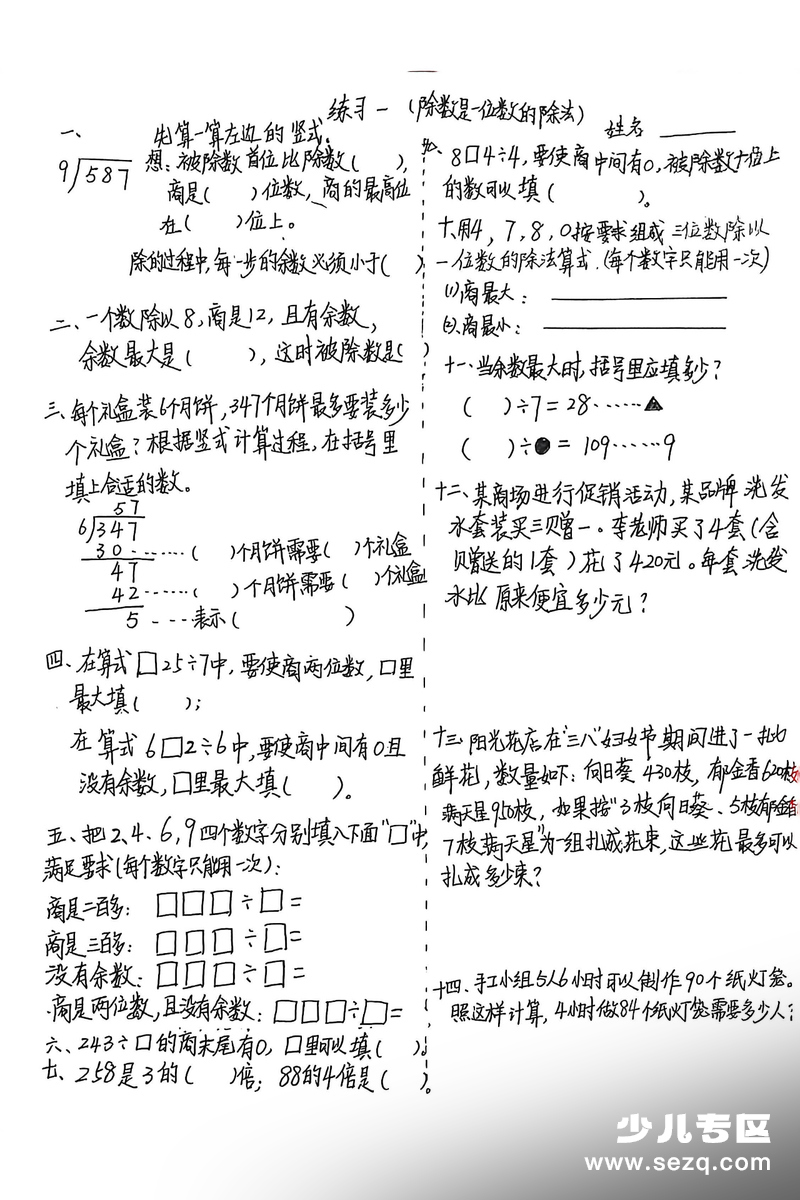 练习一(除数是一位数的除法)
姓名
一、 先算一算左边的竖式。
9 587 想:被除数首位比除数( ),
商是( )位数,商的最高位
在( )位上。
除的过程中,每一步的余数必须小于( )
二、一个数除以8,商是12,且有余数,
余数最大是( ),这时被除数是( )
三、每个礼盒装6个月饼,347个月饼最多要装多少
个礼盒?根据竖式计算过程,在括号里
填上合适的数。
57
6 347
30……( )个月饼需要( )个礼盒
47
42……( )个月饼需要( )个礼盒
5 ……表示( )
四、在算式□25÷7中,要使商两位数,□里
最大填( );
在算式6□2÷6中,要使商中间有0且
没有余数,□里最大填( )。
五、把2、4、6,9四个数字分别填入下面"□"中,
满足要求(每个数字只能用一次):
商是二百多: □□□÷□=
商是三百多: □□□÷□=
没有余数: □□□÷□=
商是两位数,且没有余数:□□□÷□=
六、243÷□的商末尾有0,□里可以填( )。
七、258是3的( )倍; 88的4倍是( )。
八、8□4÷4,要使商中间有0,被除数十位上
的数可以填( )。
十、用4,7,8,0按要求组成三位数除以
一位数的除法算式.(每个数字只能用一次)
⑴商最大:
⑵商最小:
十一、当余数最大时,括号里应填多少?
( )÷7=28……▲
( )÷●=109……9
十二、某商场进行促销活动,某品牌洗发
水套装买三赠一。李老师买了4套(含
赠送的1套)花了420元。每套洗发
水比原来便宜多少元?
十三、阳光花店在"三八"妇女节期间进了一批
鲜花,数量如下:向日葵430枝,郁金香620枝
满天星950枝,如果按"3枝向日葵、5枝郁金香
7枝满天星"为一组扎成花束,这些花最多可以
扎成多少束?
十四、手工小组5人6小时可以制作90个纸灯笼。
照这样计算,4小时做84个纸灯笼需要多少人?
少儿专区
www.sezq.com